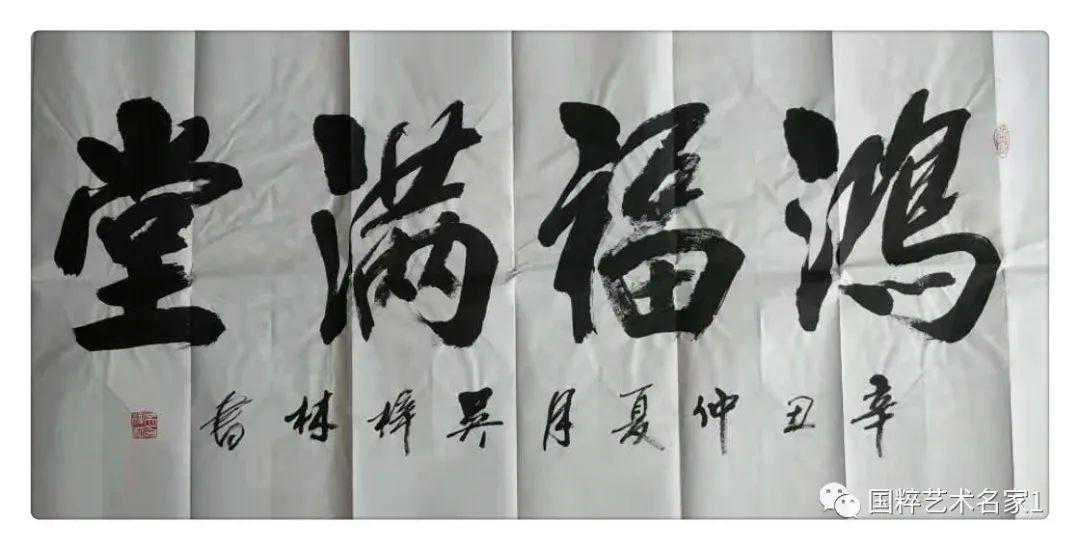 鸿福满堂
辛丑仲夏月吴梓林书
国粹艺术名家1